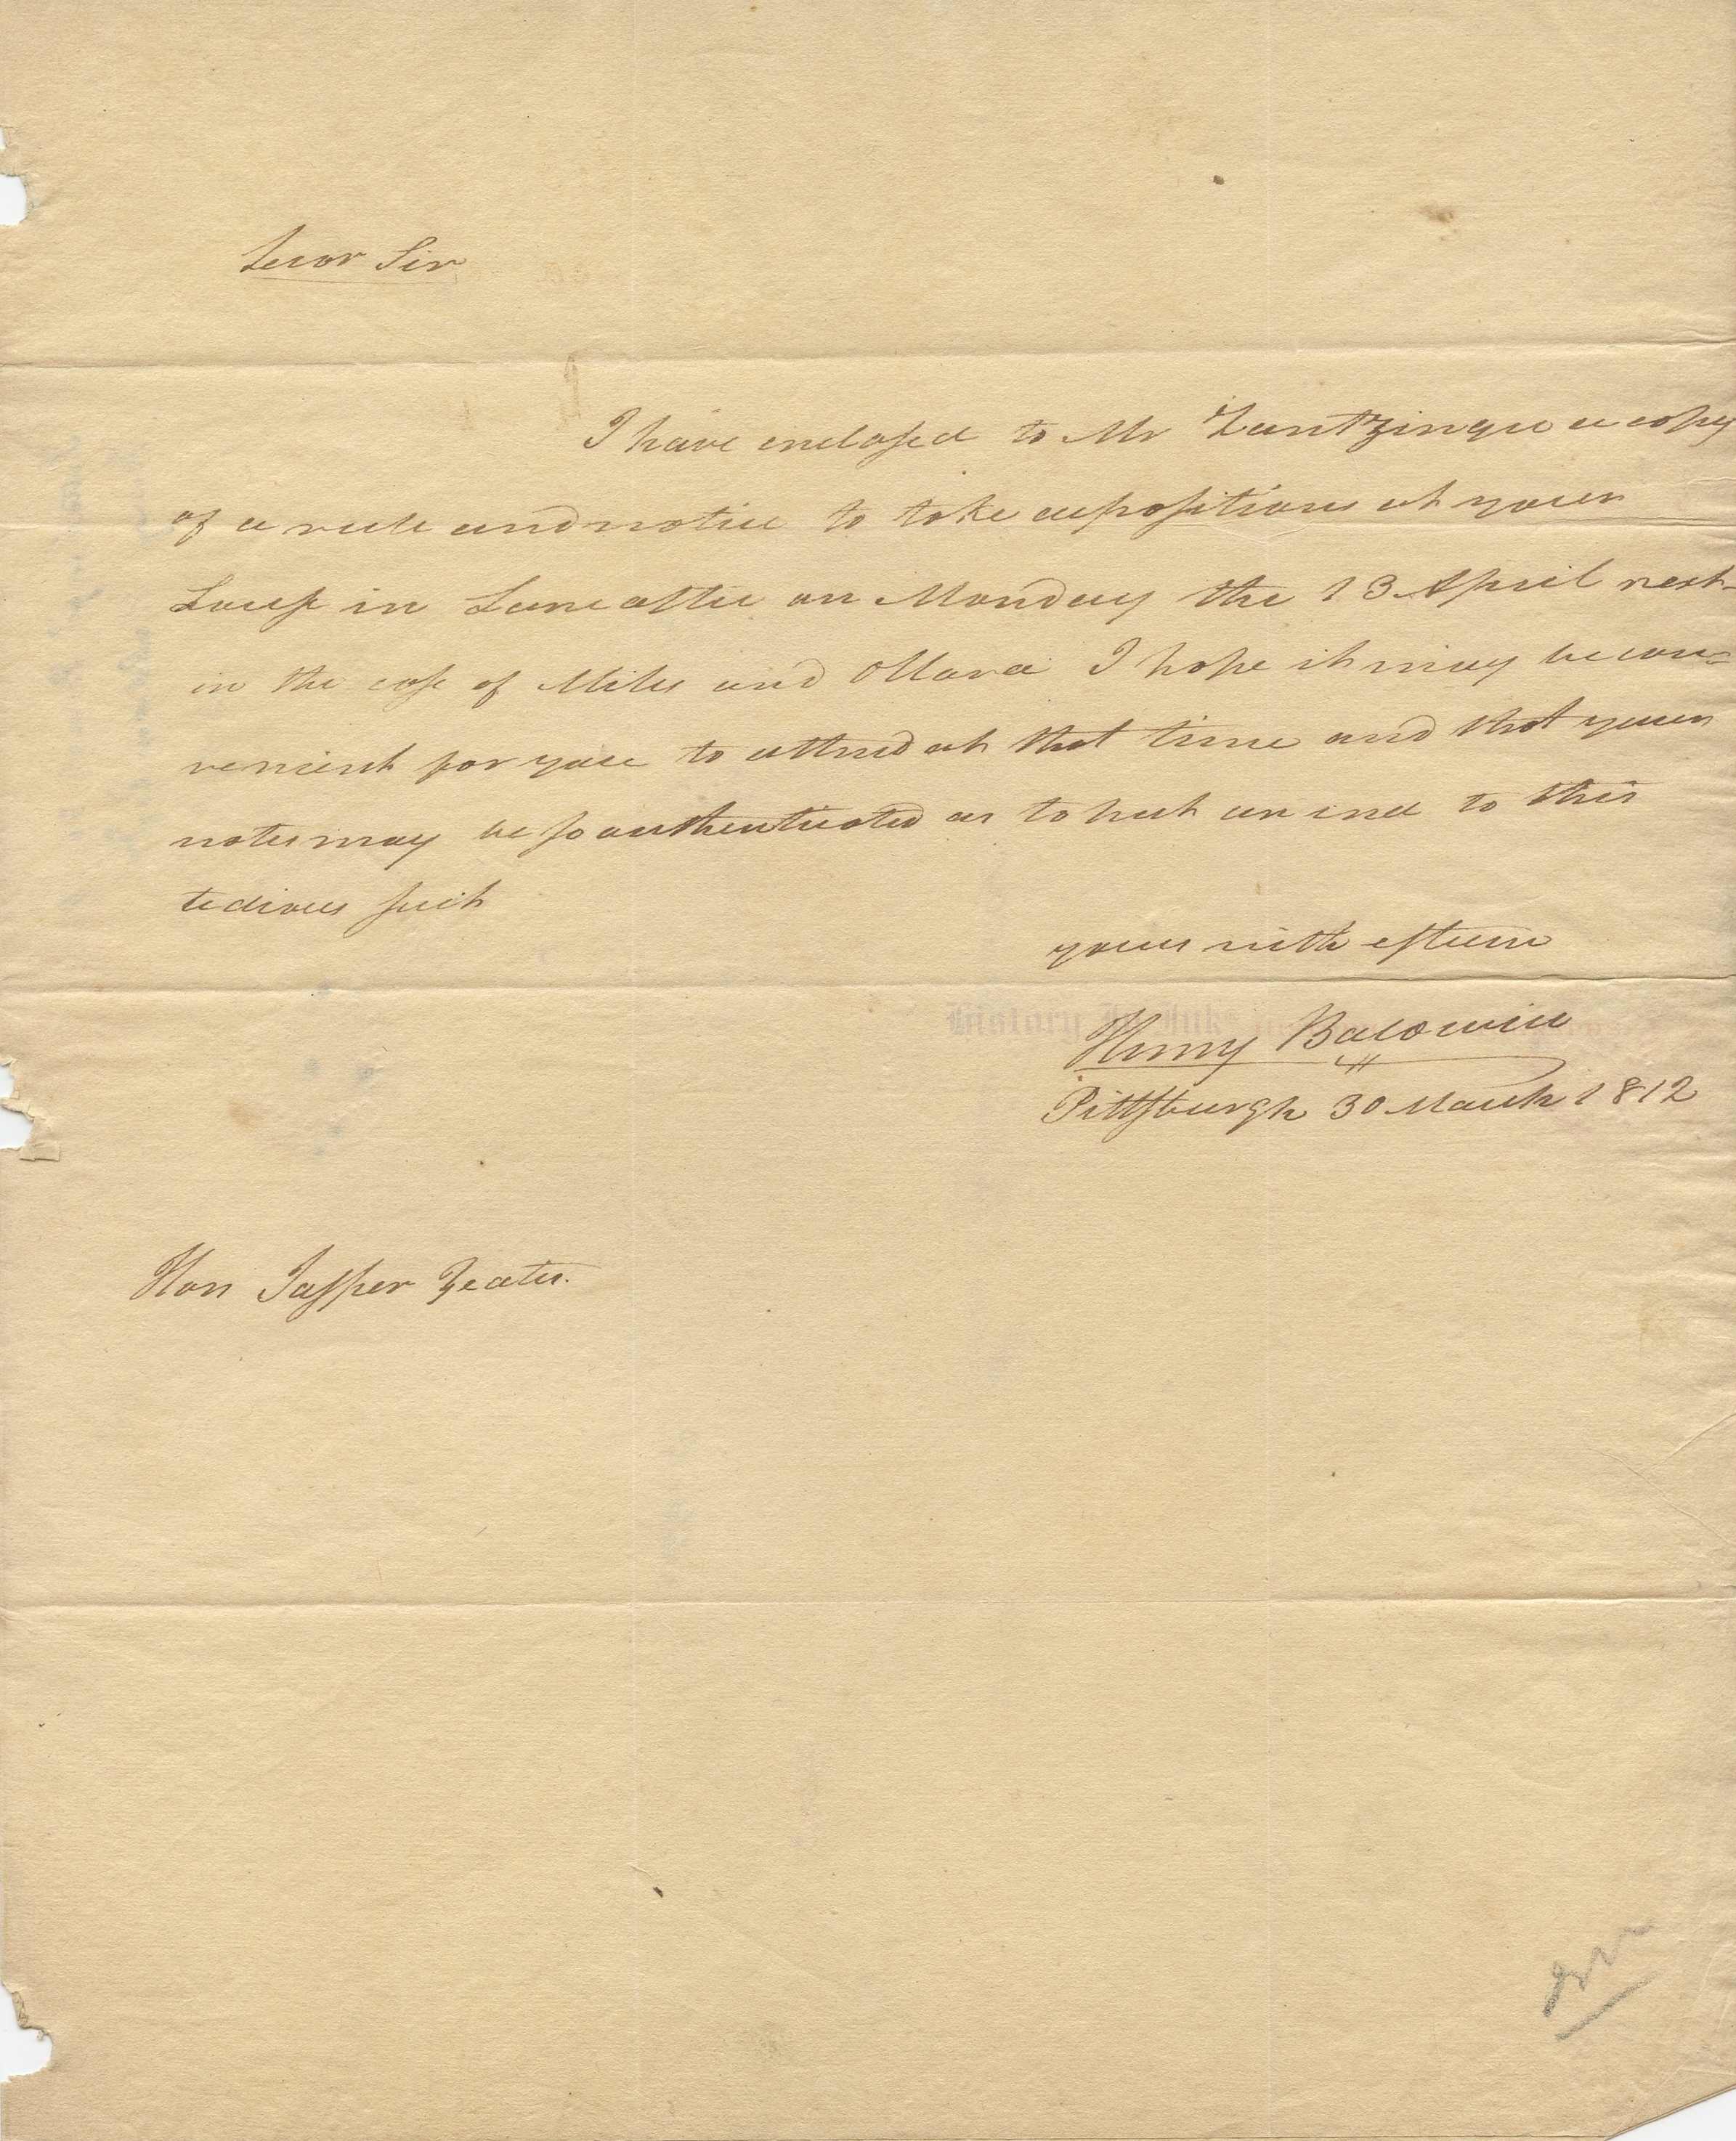 Dear Sir
I have enclosed to Mr Zantzinger a copy
of a rule and notice to take depositions at your
House in Lancaster on Monday the 13 April next
in the case of Miles and OHara I hope it may be con=
venient for you to attend at that time and that your
notes may be so authenticated as to put an end to this
tedious suit
yours with esteem
History In Ink
Henry Baldwin
Pittsburgh 30 March 1812
Hon Jasper Yeates.